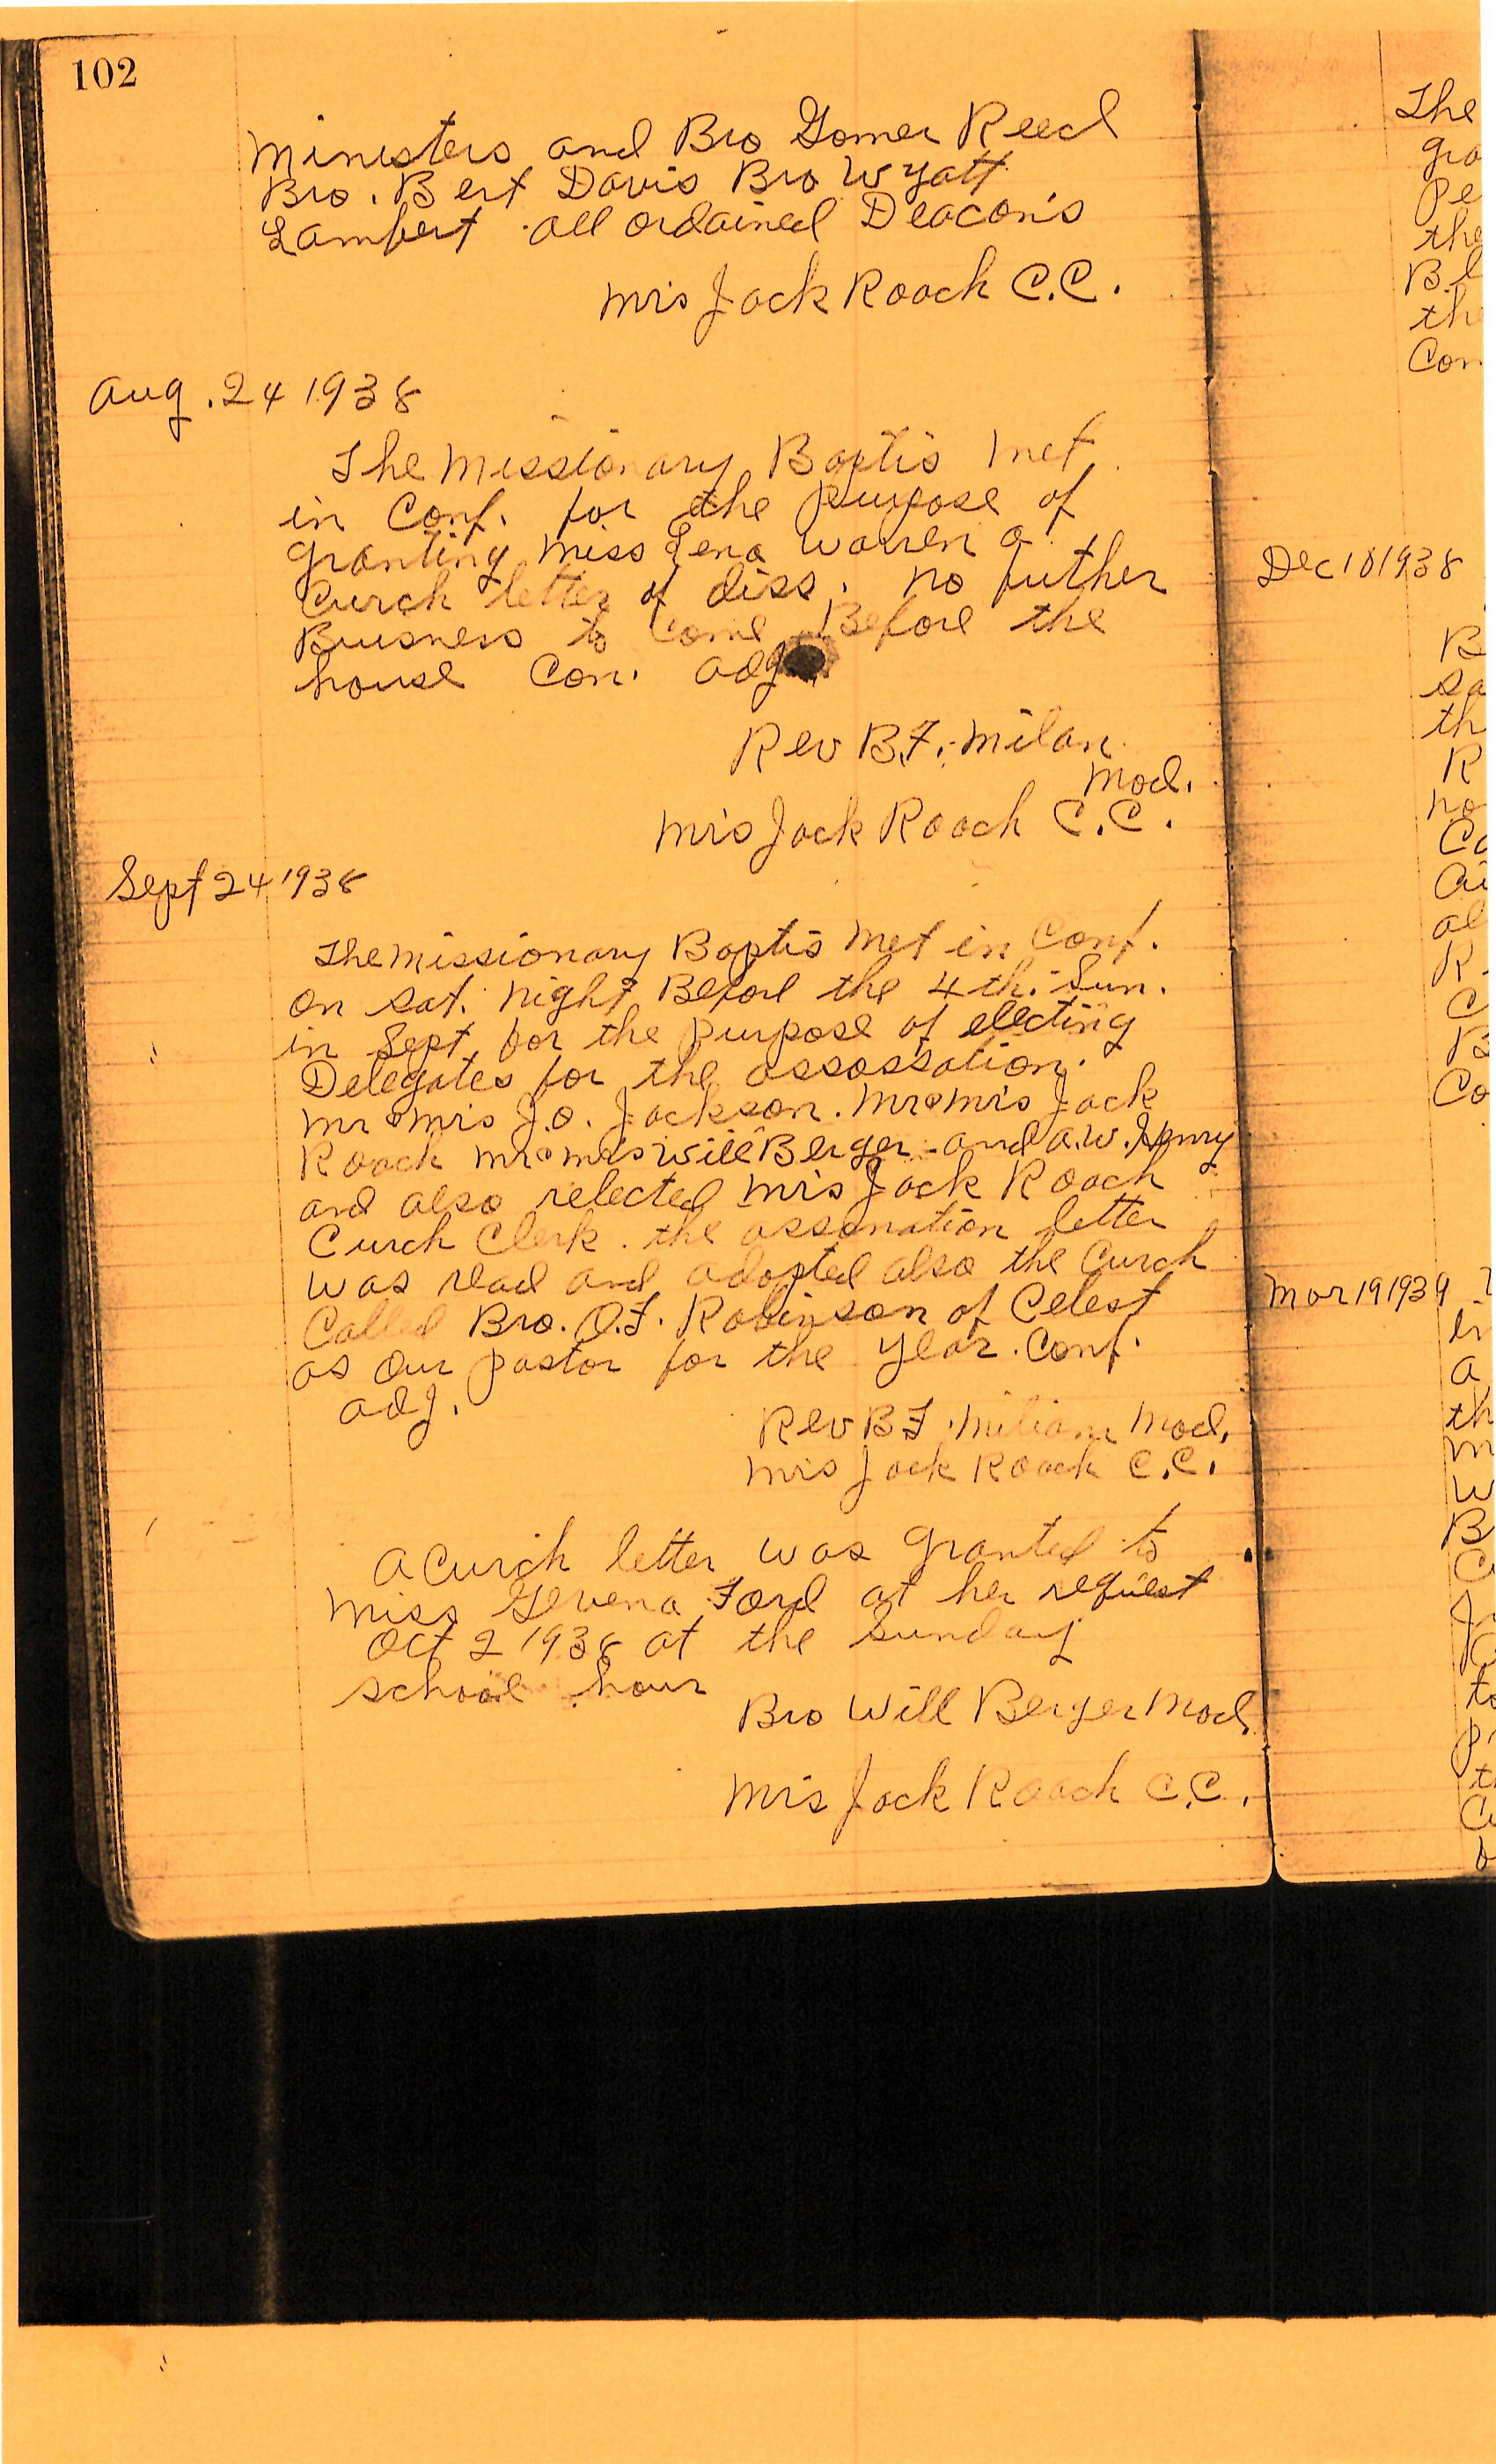 102
Ministers and Bro Gomer Reed
Bro. Bert Davis Bro Wyatt
Lambert all ordained Deacon's
Mrs Jack Roach C.C.
Aug. 24 1938
The Missionary Baptis met
in Conf. for the Purpose of
granting Miss Lena Warren a
Curch letter of diss. no futher
Buisness to Come Before the
house Con. adj
Rev B.F. Milan
Mod.
Mrs Jack Roach C.C.
Sept 24 1938
The Missionary Baptis Met in Conf.
on Sat. night Before the 4th. Sun.
in Sept for the Purpose of electing
Delegates for the assossation.
Mr & Mrs J.O. Jackson. Mr & Mrs Jack
Roach Mr & Mrs Will Berger and A.W. Henry
and also relected Mrs Jack Roach
Curch Clerk. the assonation letter
was read and adopted also the Curch
Called Bro. O.F. Robinson of Celest
as Our pastor for the Year. Conf.
adj.
Rev B F. Miliam Mod.
Mrs Jack Roach C.C.
A Curch letter was granted to
Miss Gevena Ford at her request
Oct 2 1938 at the Sunday
school hour
Bro Will Berger Mod.
Mrs Jack Roach C.C.
The
gra
Pe
the
B.
th
Con
Dec 18 1938
B
Sa
th
R
no
Co
al
R
C
B
Co
Mar 19 1939
in
a
th
m
W
B
C